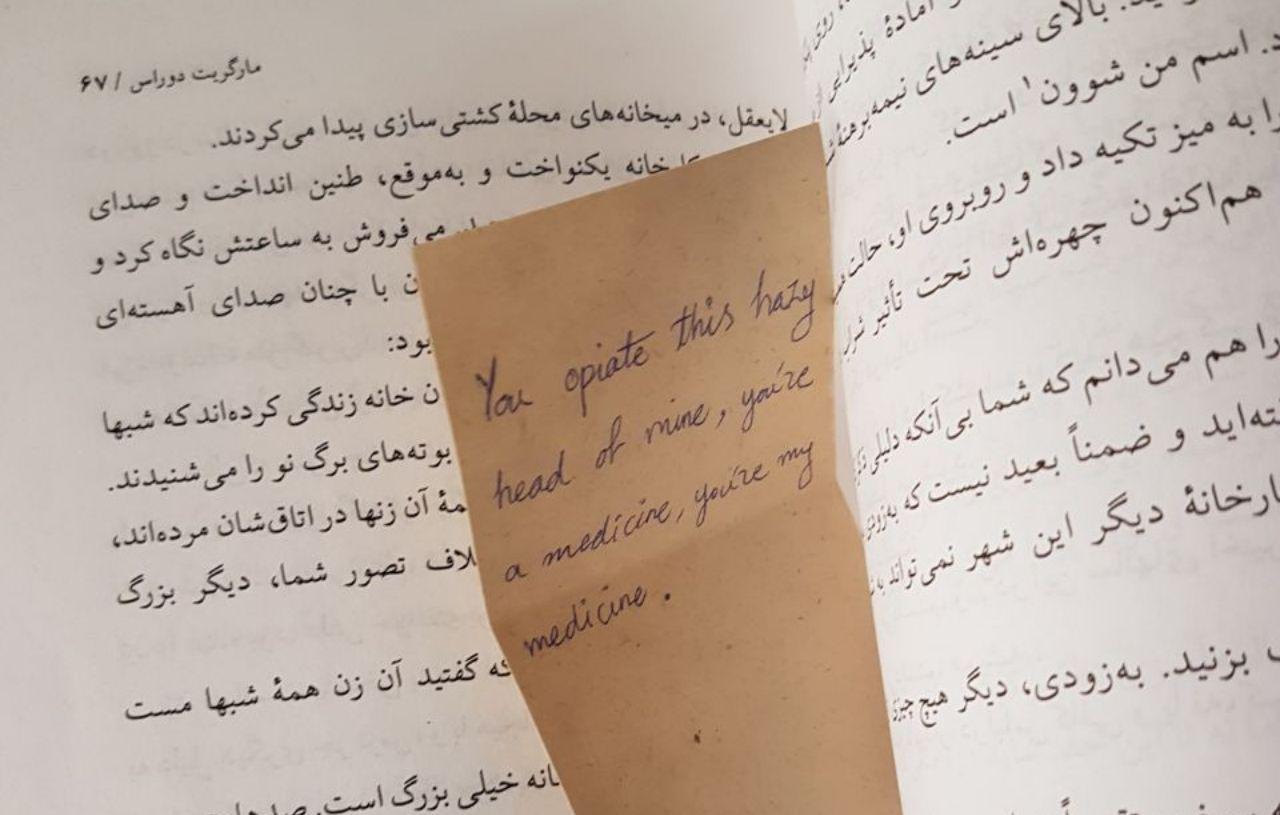 مارگریت دوراس / ۶۷
لایعقل، در میخانه‌های محلهٔ کشتی‌سازی پیدا می‌کردند.
خانه یکنواخت و به‌موقع، طنین انداخت و صدای
می‌فروش به ساعتش نگاه کرد و
با چنان صدای آهسته‌ای
بود:
خانه زندگی کرده‌اند که شبها
بوته‌های برگ نو را می‌شنیدند.
آن زنها در اتاق‌شان مرده‌اند،
تصور شما، دیگر بزرگ
که گفتید آن زن همهٔ شبها مست
خیلی بزرگ است.
You opiate this hazy
head of mine, you're
a medicine, you're my
medicine.
آمادهٔ پذیرایی
بالای سینه‌های نیمه‌برهنهٔ
اسم من شوون۱ است.
را به میز تکیه داد و روبروی او، حالت
هم‌اکنون چهره‌اش تحت تأثیر شراب
را هم می‌دانم که شما بی‌آنکه دلیلی
و ضمناً بعید نیست که به‌زودی
دیگر این شهر نمی‌تواند
بزنید. به‌زودی، دیگر هیچ چیزی